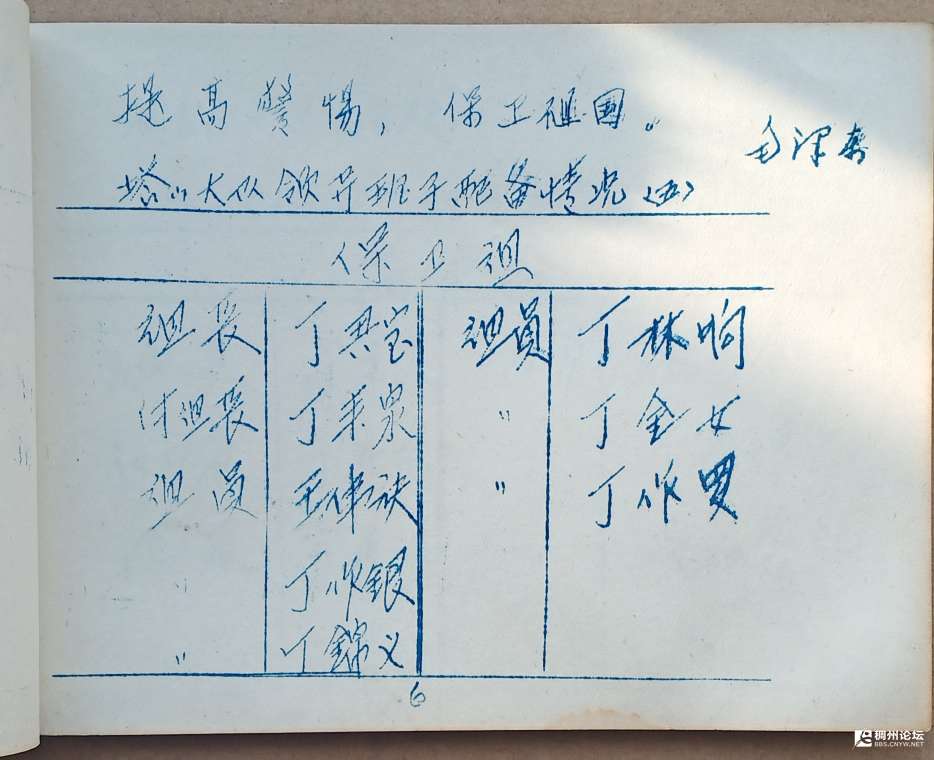 提高警惕，保卫祖国。
毛泽东
塔山大队领导班子配备情况（五）
保卫组
组長 丁 宝 组員 丁林响
付组長 丁 泉 〃 丁金女
组员 王 〃 丁作买
〃 丁作銀
〃 丁錦义
6
稠州论坛
BBS.CNYW.NET